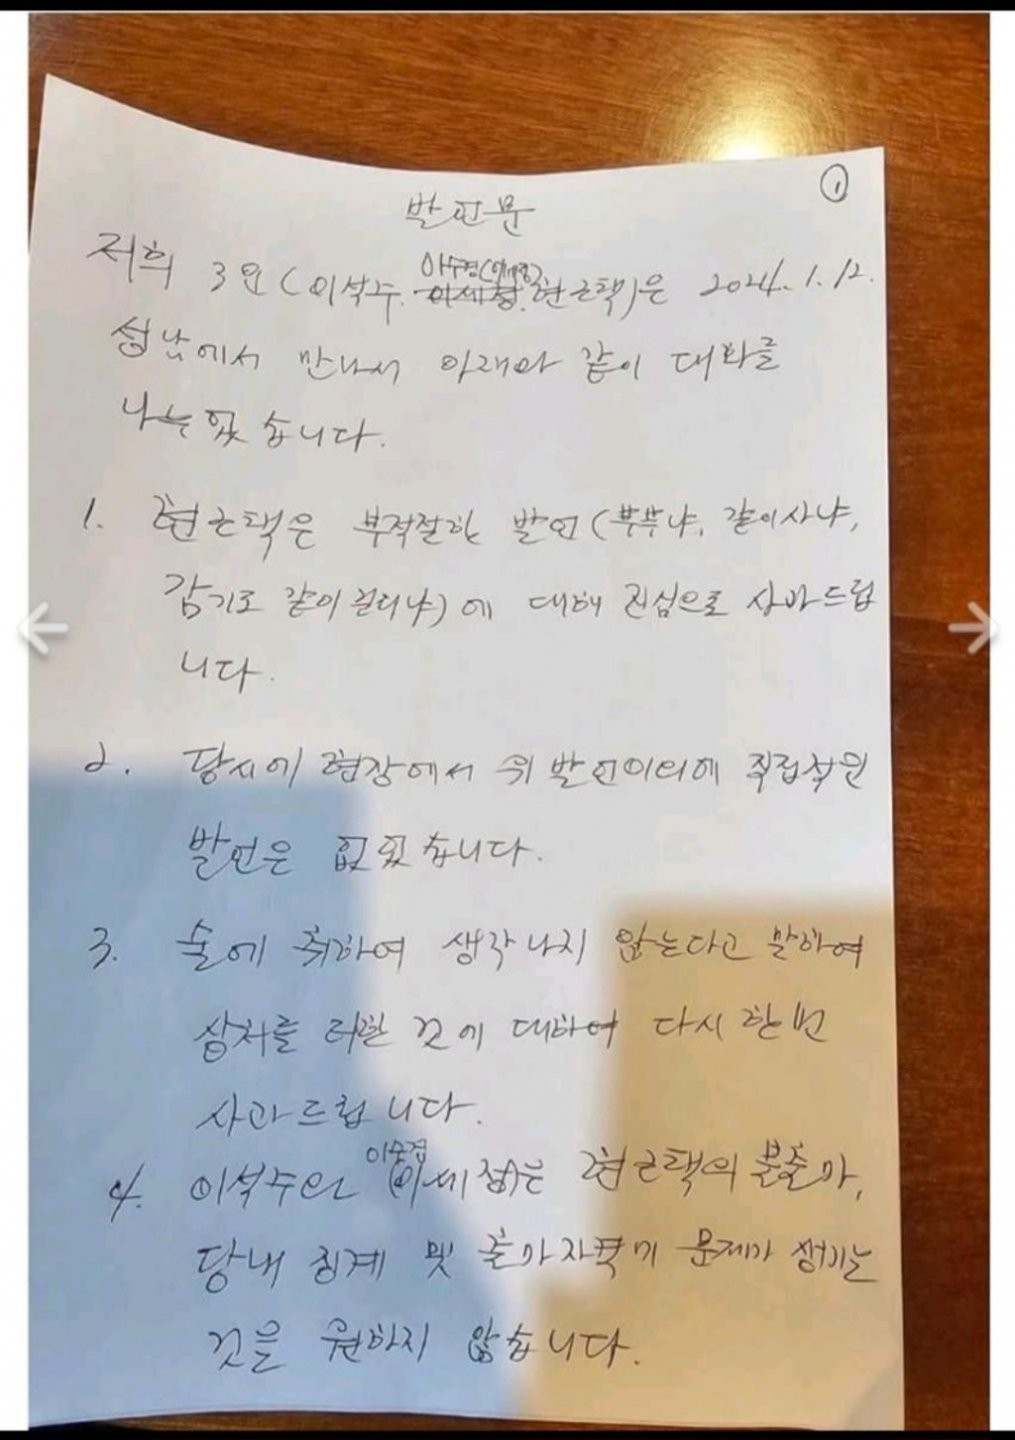 ①
발언문
이수경(이세정)
저희 3인(이석주. 이세정. 현근택)은 2024. 1. 12.
성남에서 만나서 아래와 같이 대화를
나눴었습니다.
1. 현근택은 부적절한 발언(부부냐, 같이사냐,
감기도 같이 걸리냐)에 대해 진심으로 사과드립
니다.
2. 당시에 현장에서 위 발언이외에 직접적인
발언은 없었습니다.
3. 술에 취하여 생각나지 않는다고 말하여
상처를 더한 것에 대하여 다시 한번
사과드립니다.
4. 이석주와 (이세정)은 현근택의 불출마,
당내 징계 및 출마자격기 문제가 생기는
것을 원하지 않습니다.